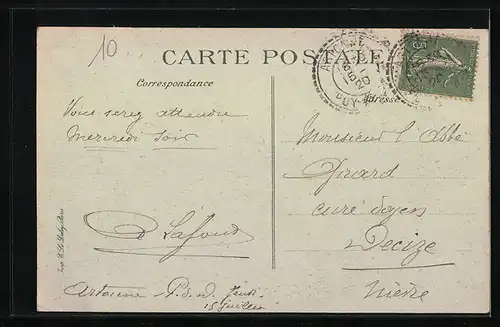 10
CARTE POSTALE
Correspondance
Adresse
Vous serez attendre
Mercredi soir
Lafond
Artonne P. d. D. Jeudi
15 Juillet
Monsieur l'Abbé
Girard
curé doyen
Decize
Nièvre